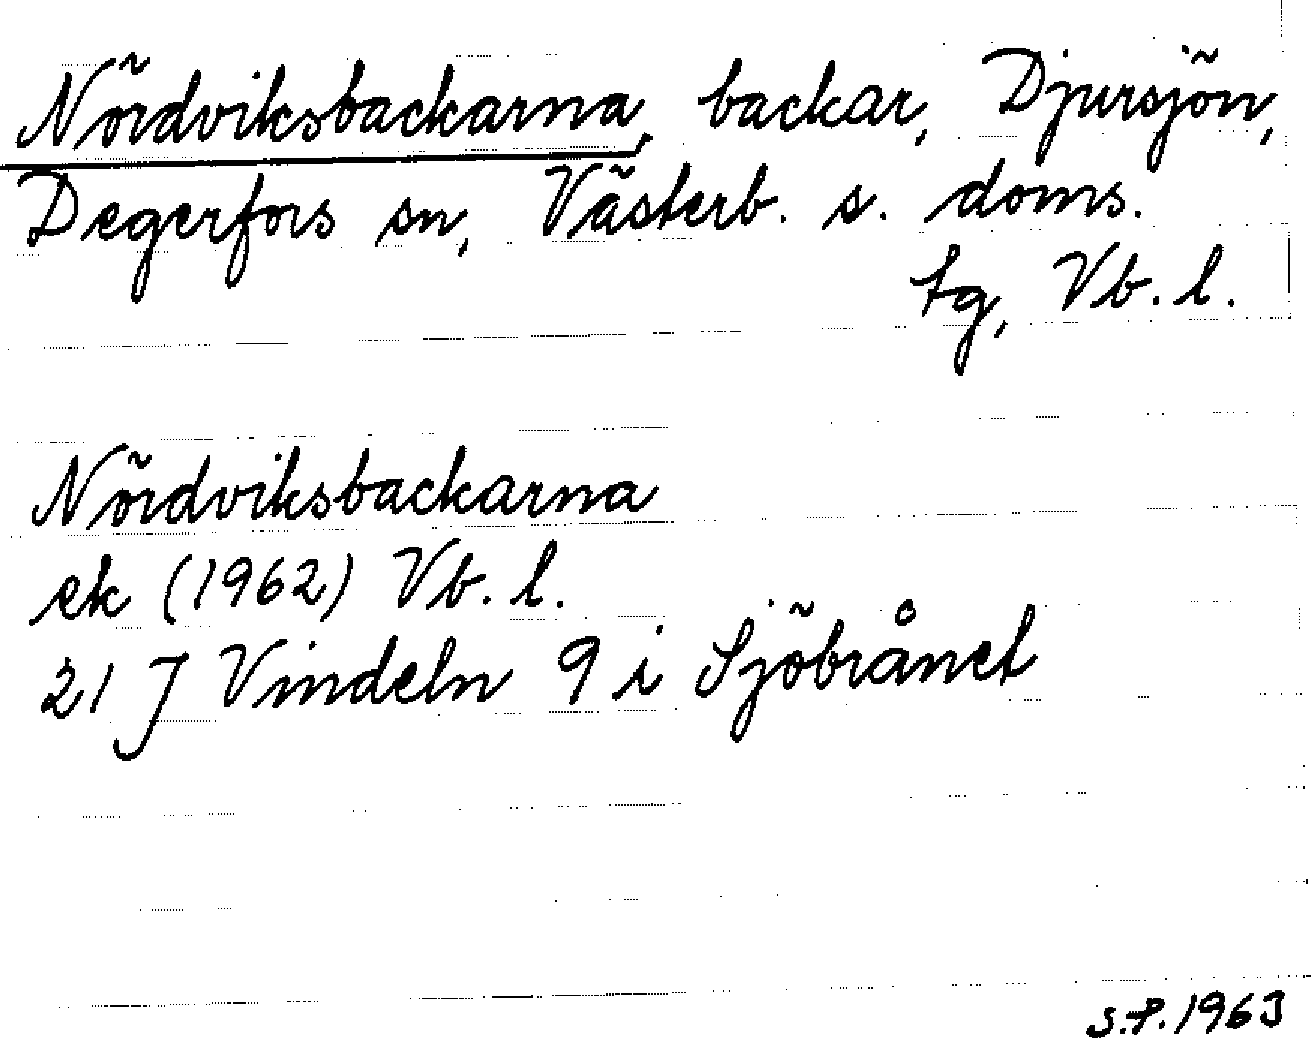 Nördviksbackarna, backar, Djursjön,
Degerfors sn, Västerb. s. doms.
tg, Vb. l.
Nördviksbackarna
ek (1962) Vb. l.
21 J Vindeln 9 i Sjöbrånet
S.P. 1963